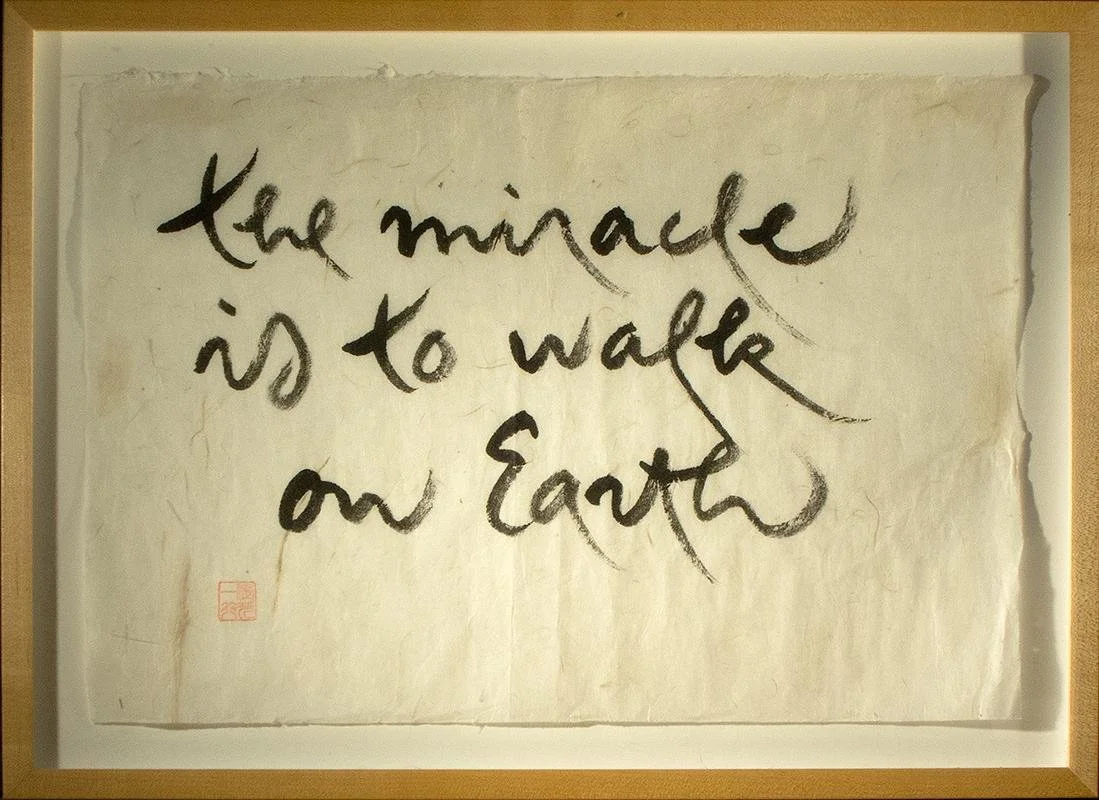 the miracle
is to walk
on Earth